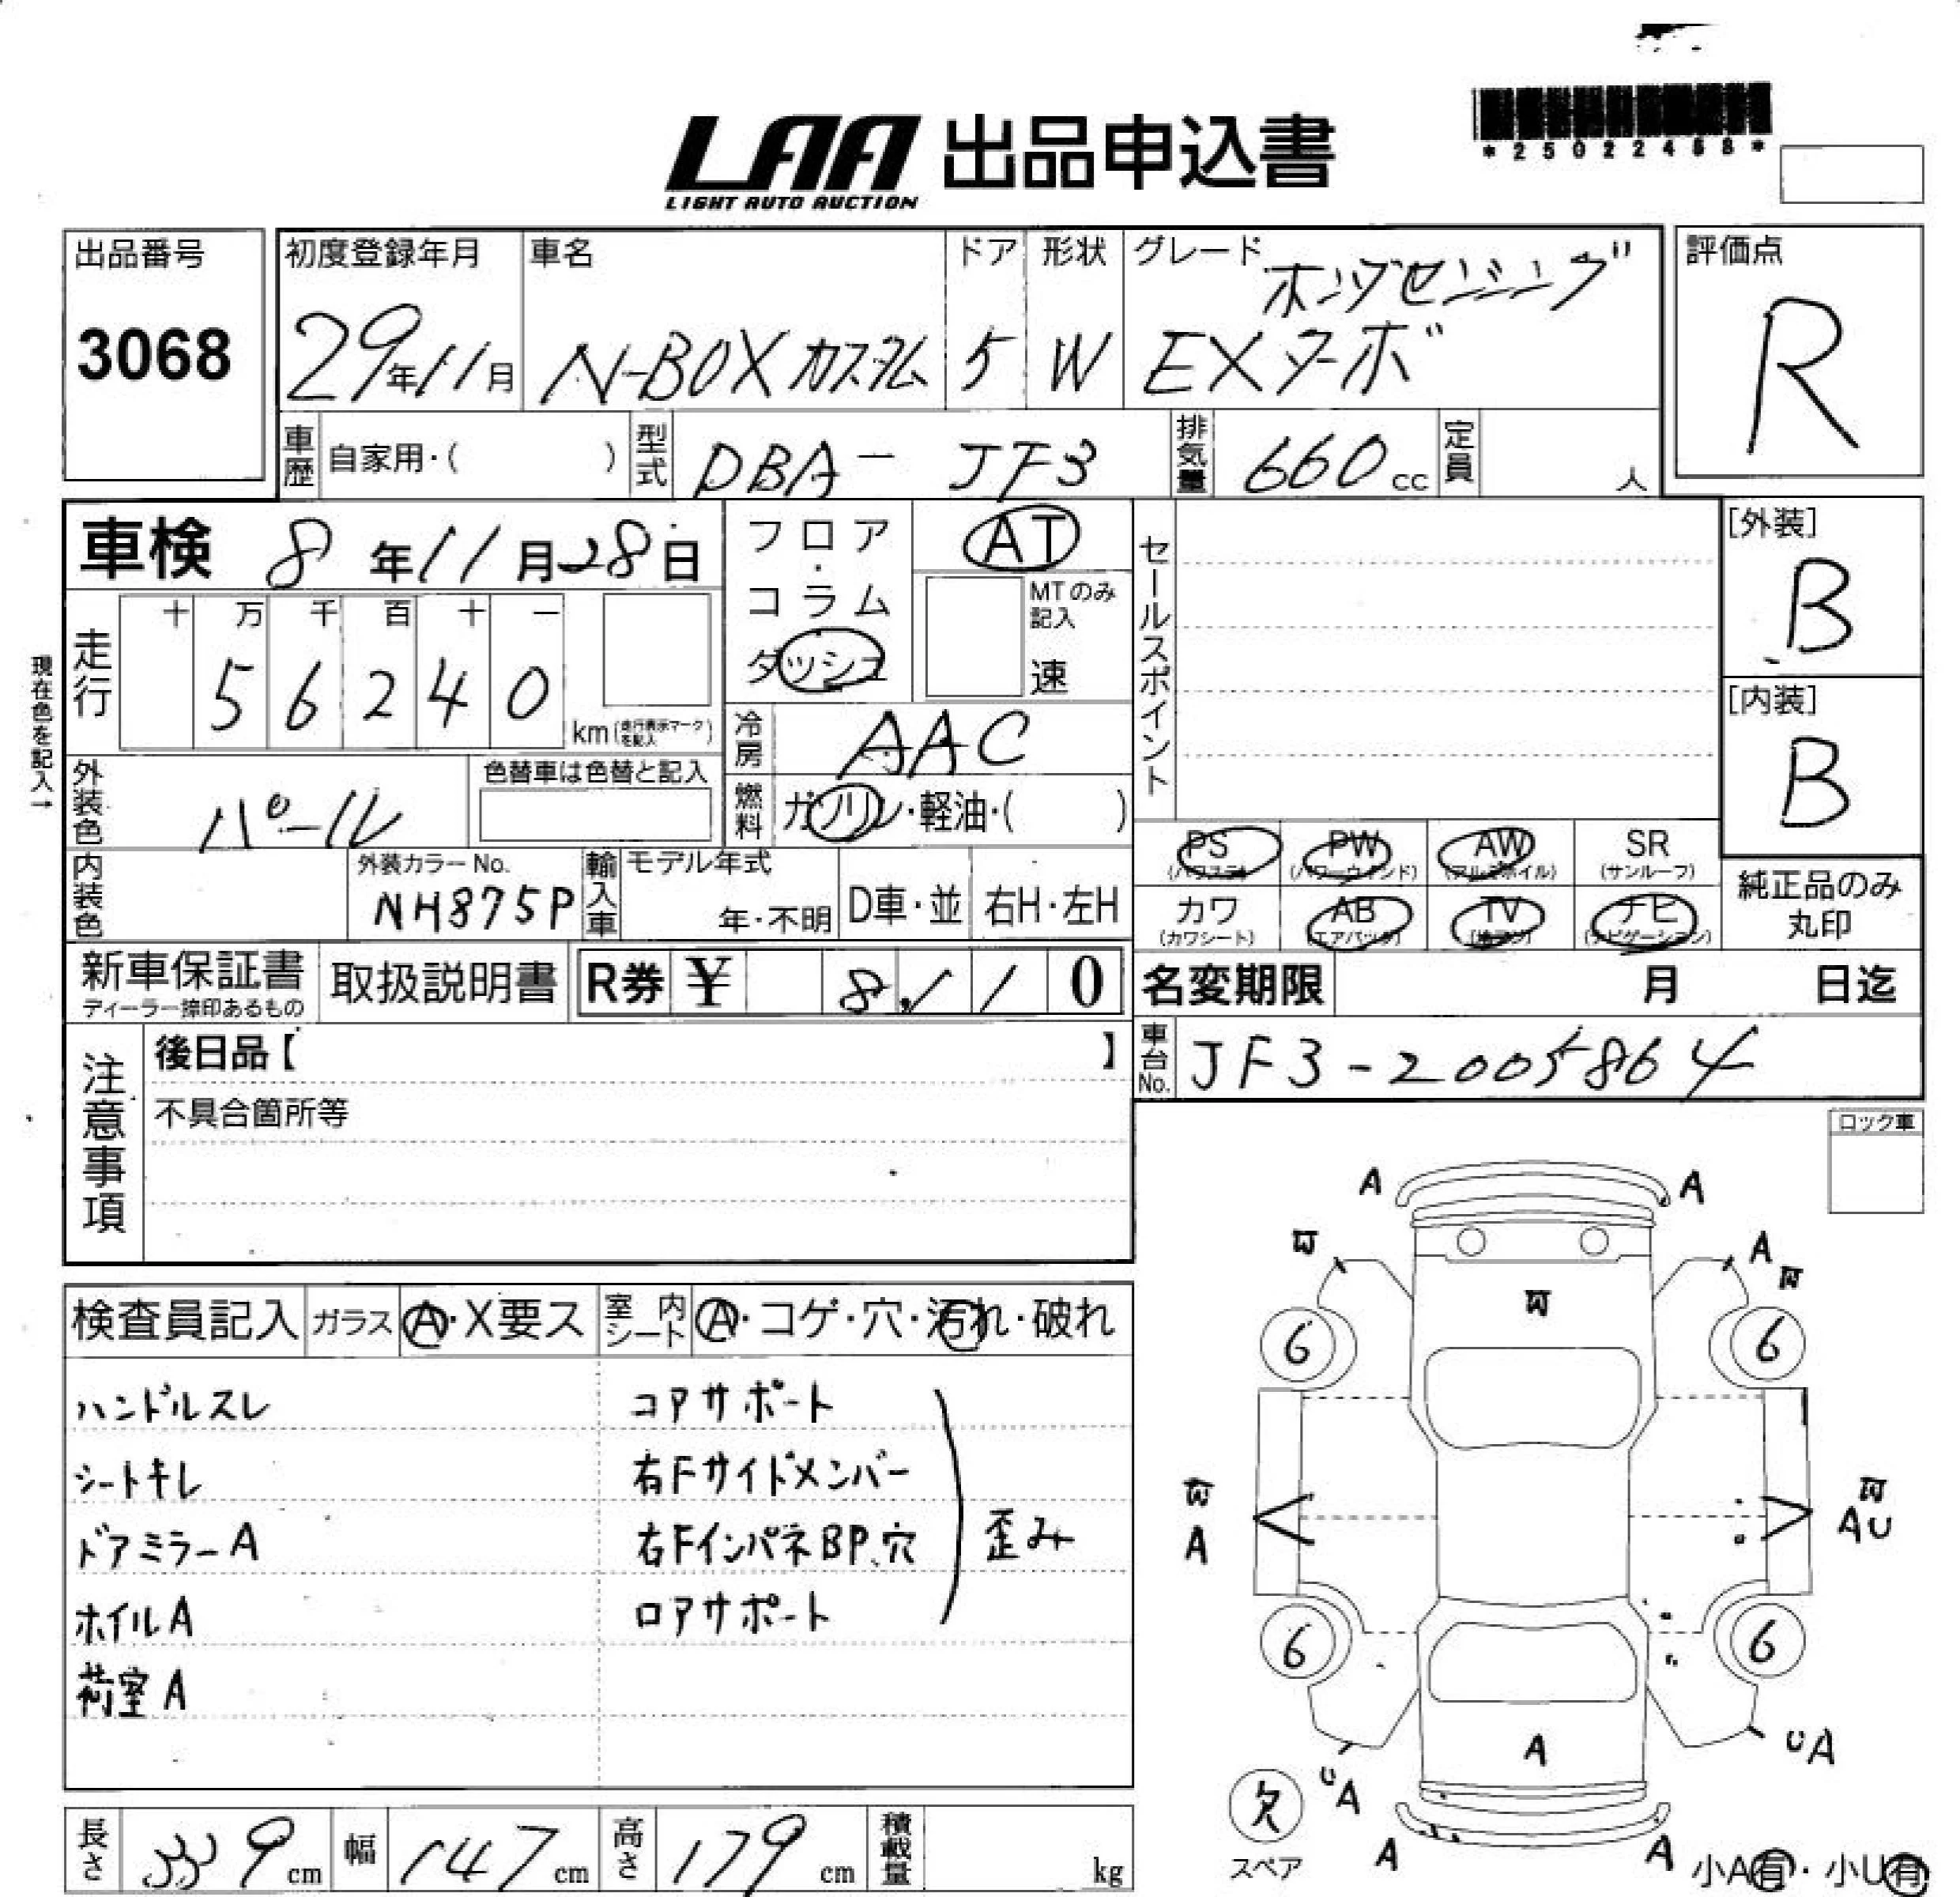 LAA 出品申込書
LIGHT AUTO AUCTION
*25022468*
出品番号
3068
初度登録年月
29年11月
車名
N-BOXカスタム
ドア
5
形状
W
グレード
ホンダセンシング
EXターボ
評価点
R
車歴
自家用・( )
型式
DBA- JF3
排気量
660cc
定員
人
車検 8年11月28日
フロア・コラム
ダッシュ
AT
MTのみ記入
速
セールスポイント
[外装]
B
[内装]
B
現在色を記入→
走行
十 万 千 百 十 一
5 6 2 4 0
km(走行表示マークを記入)
冷房
AAC
外装色
パール
色替車は色替と記入
燃料
ガソリン・軽油・( )
内装色
外装カラーNo.
NH875P
輸入車
モデル年式
年・不明
D車・並
右H・左H
PS
(パワステ)
PW
(パワーウィンド)
AW
(アルミホイル)
SR
(サンルーフ)
カワ
(カワシート)
AB
(エアバッグ)
TV
ナビ
(ナビゲーション)
純正品のみ
丸印
新車保証書
ディーラー捺印あるもの
取扱説明書
R券 ¥ 8,110
名変期限 月 日迄
車台No.
JF3-2005864
注意事項
後日品【 】
不具合箇所等
ロック車
検査員記入
ガラス
A・X要ス
室内シート
A・コゲ・穴・汚れ・破れ
ハンドルスレ
シートキレ
ドアミラーA
ホイルA
荷室A
コアサポート
右Fサイドメンバー
右FインパネBP、穴
ロアサポート
歪み
A A
W A W
W
6 6
W W
A AU
6 6
A
UA UA
欠
スペア
A A
小A有・小U有
長さ
339cm
幅
147cm
高さ
179cm
積載量
kg